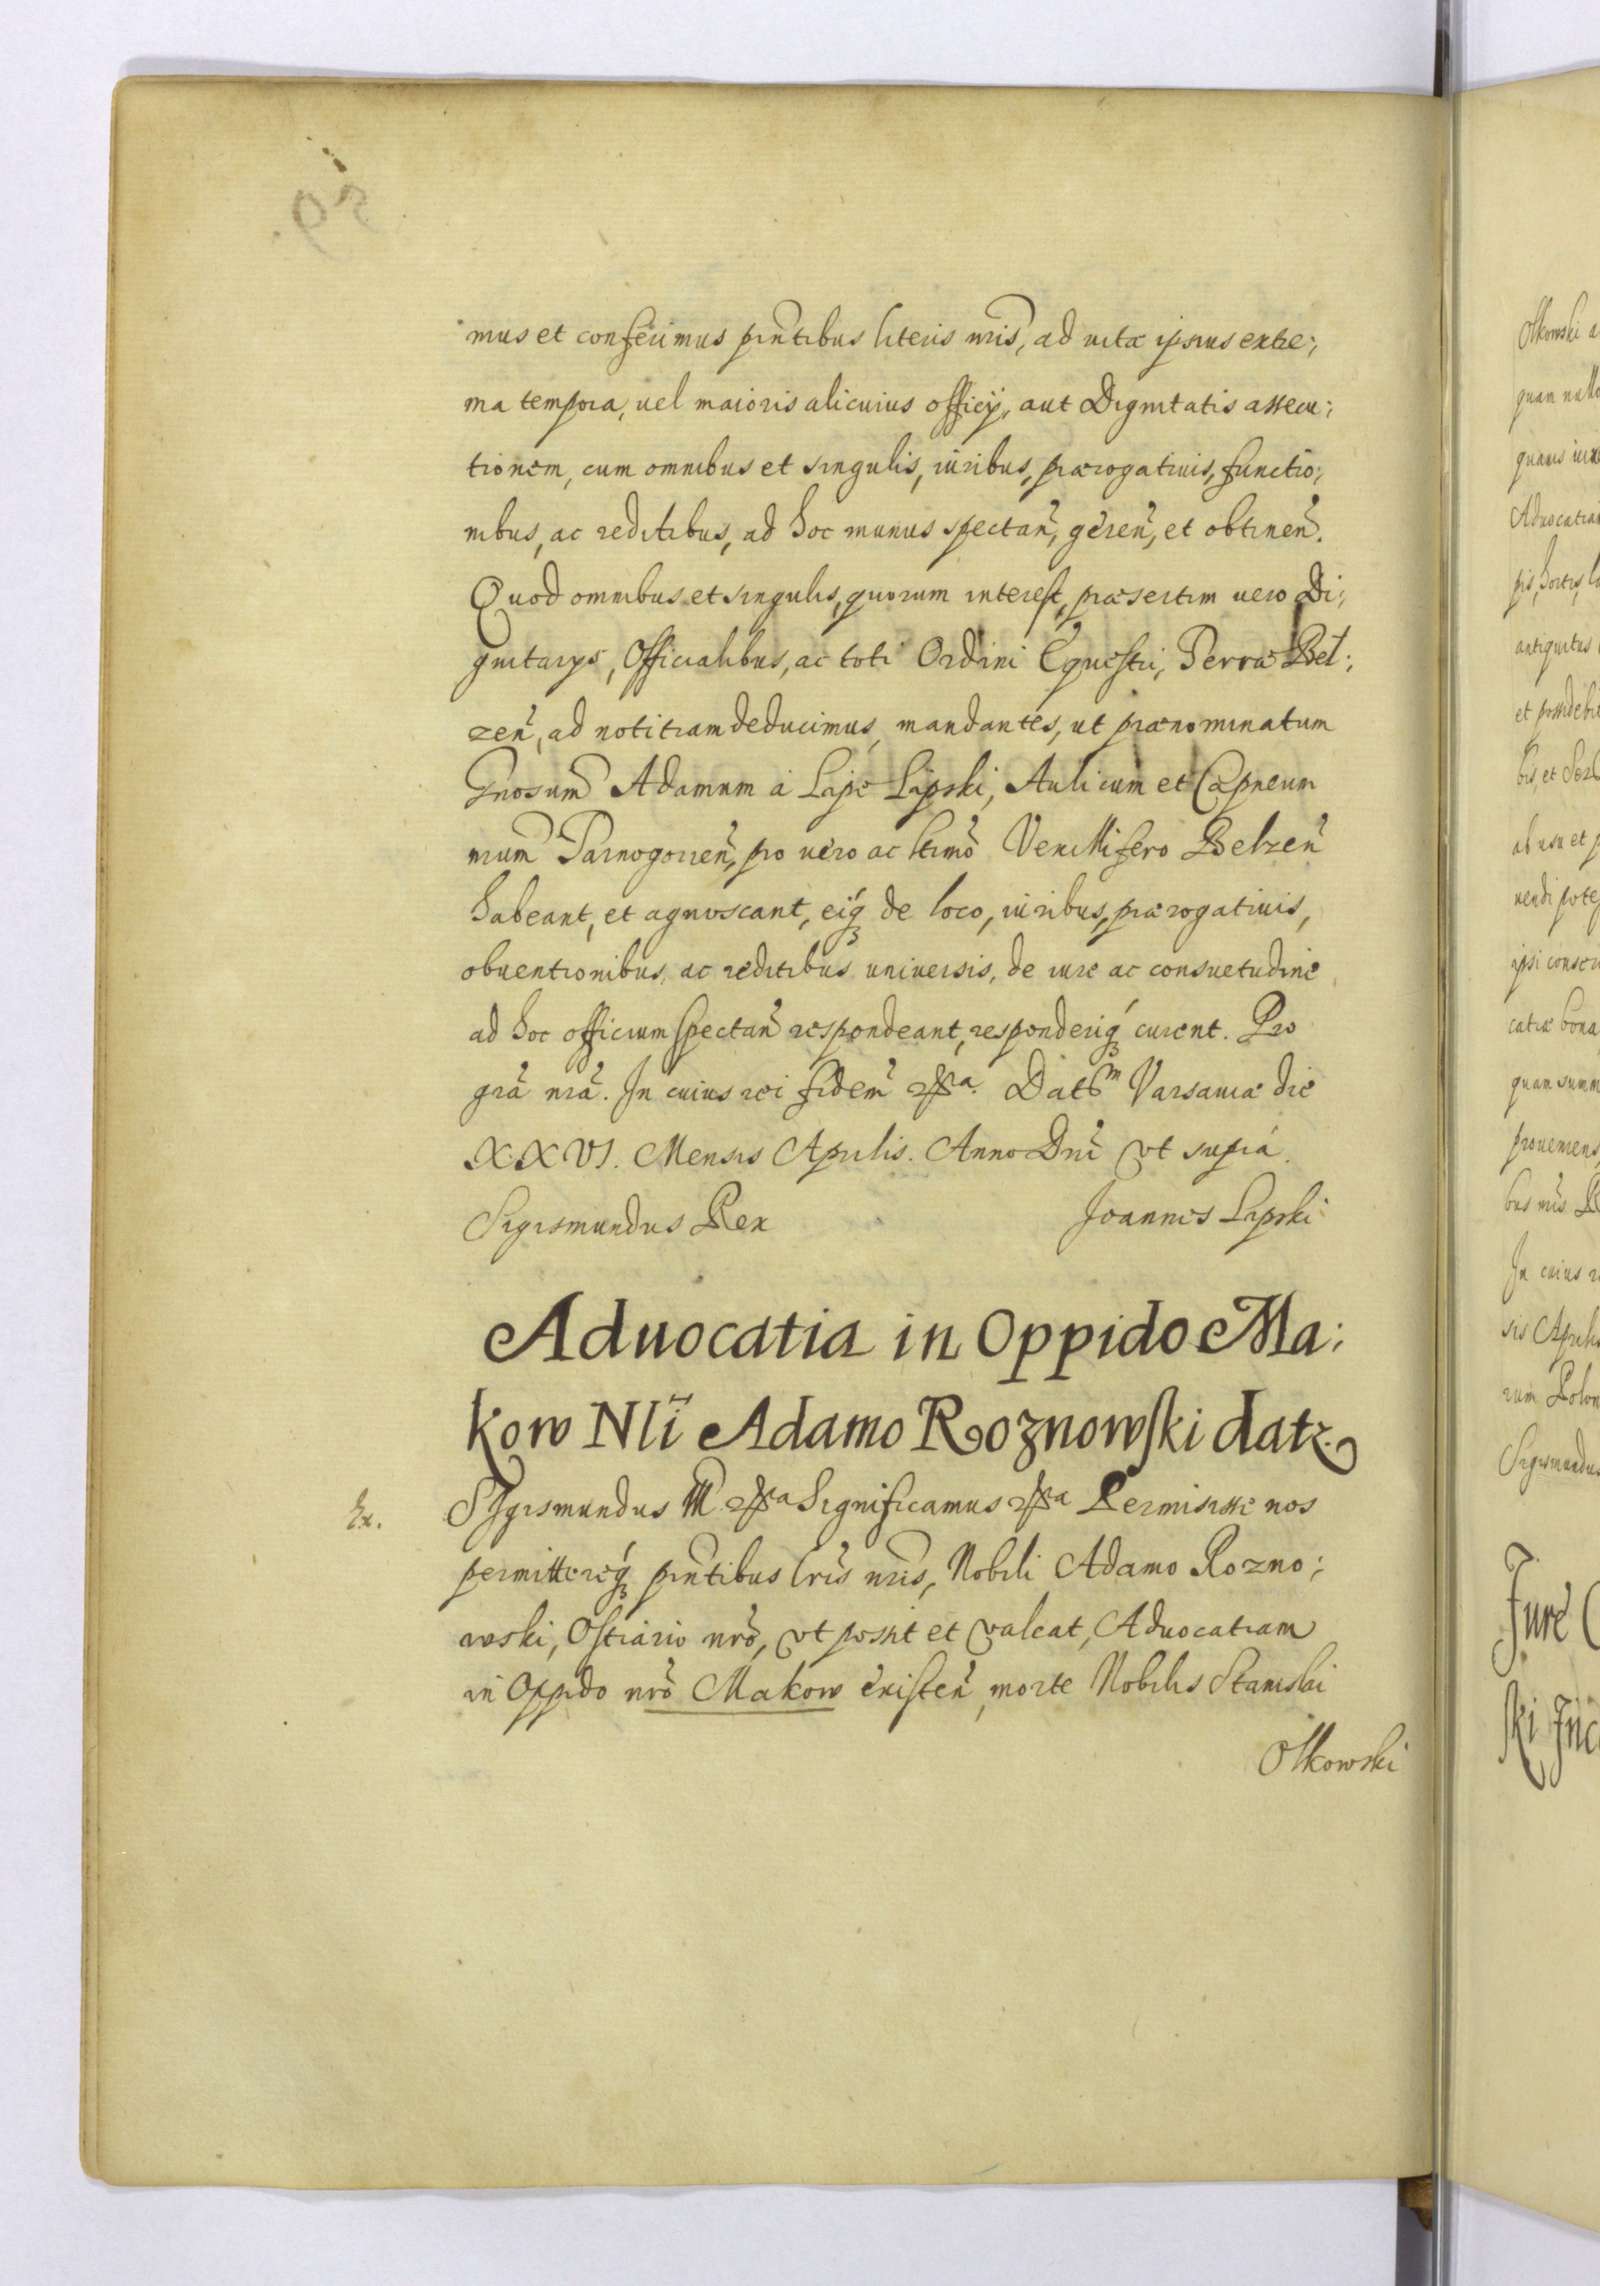 mus et conferimus pñtibus literis nris, ad vitæ ipsius extre;
ma tempora, uel maioris alicuius officij, aut Dignitatis assecu;
tionem, cum omnibus et singulis, iuribus, prærogatiuis, functio;
nibus, ac reditibus, ad hoc munus spectan̄, geren̄, et obtinen̄.
Quod omnibus et singulis, quorum interest, præsertim uero Di;
gnitarys, Officialibus, ac toti Ordini Equestri, Terræ Bel;
zen̄, ad notitiam deducimus, mandantes, ut prænominatum
Gnosum Adamum à Lipe Lipski, Aulicum et Capneum
nrum Tarnogorien̄, pro uero ac ltimo Vexillifero Belzen̄
habeant, et agnoscant, eiq́ʒ de loco, iuribus, prærogatiuis,
obuentionibus, ac reditibus uniuersis, de iure ac consuetudine
ad hoc officium spectan̄ respondeant, responderiq́ʒ curent. Pro
grã nrã. In cuius rei fidem etc̃a. Datum Varsauiæ die
XXVI. Mensis Aprilis. Anno Dni vt supra.
Sigismundus Rex Joannes Lipski
Aduocatia in Oppido Ma;
kow Nli Adamo Roznowski datr
Ex. Sigismundus III etc̃a Significamus etc̃a Permisisse nos
permittereq́ʒ pñtibus lris nris, Nobili Adamo Rozno;
wski, Ostiario nro, vt possit et valeat, Aduocatiam
in Oppido nro Makow existen̄, morte Nobilis Stanislai
Olkowski
59.
Olkowski a
quam nullo
Aduocatiam
antiquitus
et possidebit
ab usu et p
uendi potes
ipsi conser
catiæ bona
quam summ
proueniens
bus nris
In cuius r
sis Aprilis
rum Polon
Sigismundus
Jure
ski